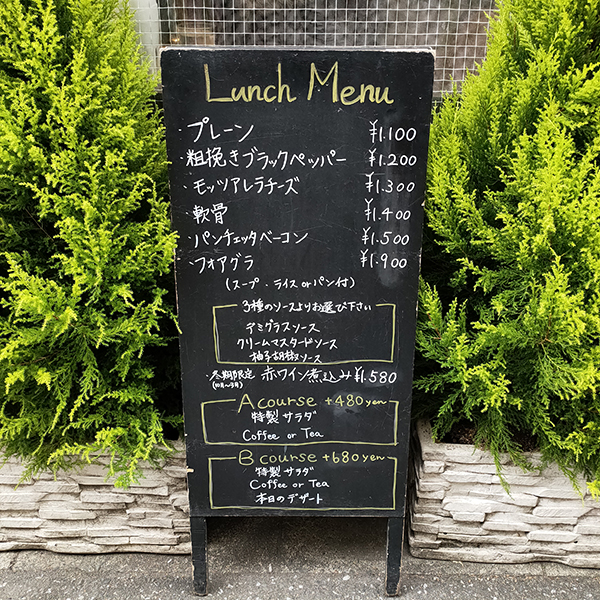 Lunch Menu
・プレーン ¥1.100
・粗挽きブラックペッパー ¥1.200
・モッツアレラチーズ ¥1.300
・軟骨 ¥1.400
・パンチェッタベーコン ¥1.500
・フォアグラ ¥1.900
(スープ・ライス or パン付)
3種のソースよりお選び下さい
デミグラスソース
クリームマスタードソース
柚子胡椒ソース
・冬期限定 赤ワイン煮込み ¥1.580
(10月〜3月)
A course +480yen
特製サラダ
Coffee or Tea
B course +680yen
特製サラダ
Coffee or Tea
本日のデザート